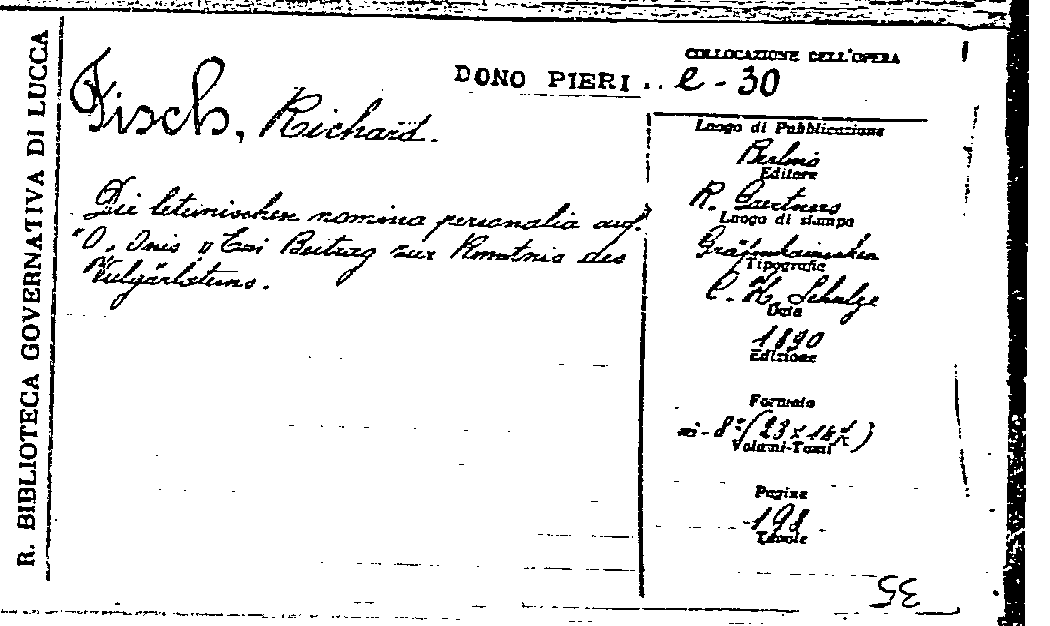 R. BIBLIOTECA GOVERNATIVA DI LUCCA
COLLOCAZIONE DELL'OPERA
DONO PIERI .. e - 30
Fisch, Richard.
Die lateinischen nomina personalia auf.
"O, Onis" Ein Beitrag zur Kenntnis des
Vulgärlateins.
Luogo di Pubblicazione
Berlino
Editore
R. Gaertners
Luogo di stampa
Gräfenhainichen
Tipografia
C. H. Schulze
Data
1890
Edizione
Formato
in-8° (23 x
Volumi-Tomi
Pagine
198
Tavole
35